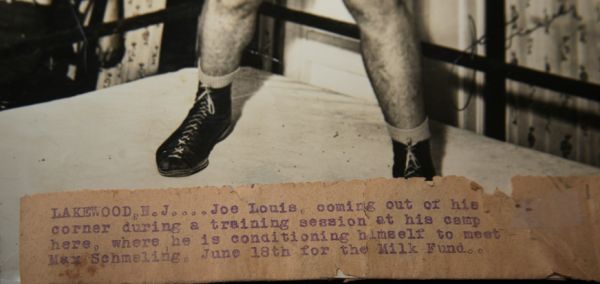 LAKEWOOD,N.J....Joe Louis, coming out of his
corner during a training session at his camp
here, where he is conditioning himself to meet
Max Schmeling, June 18th for the Milk Fund..